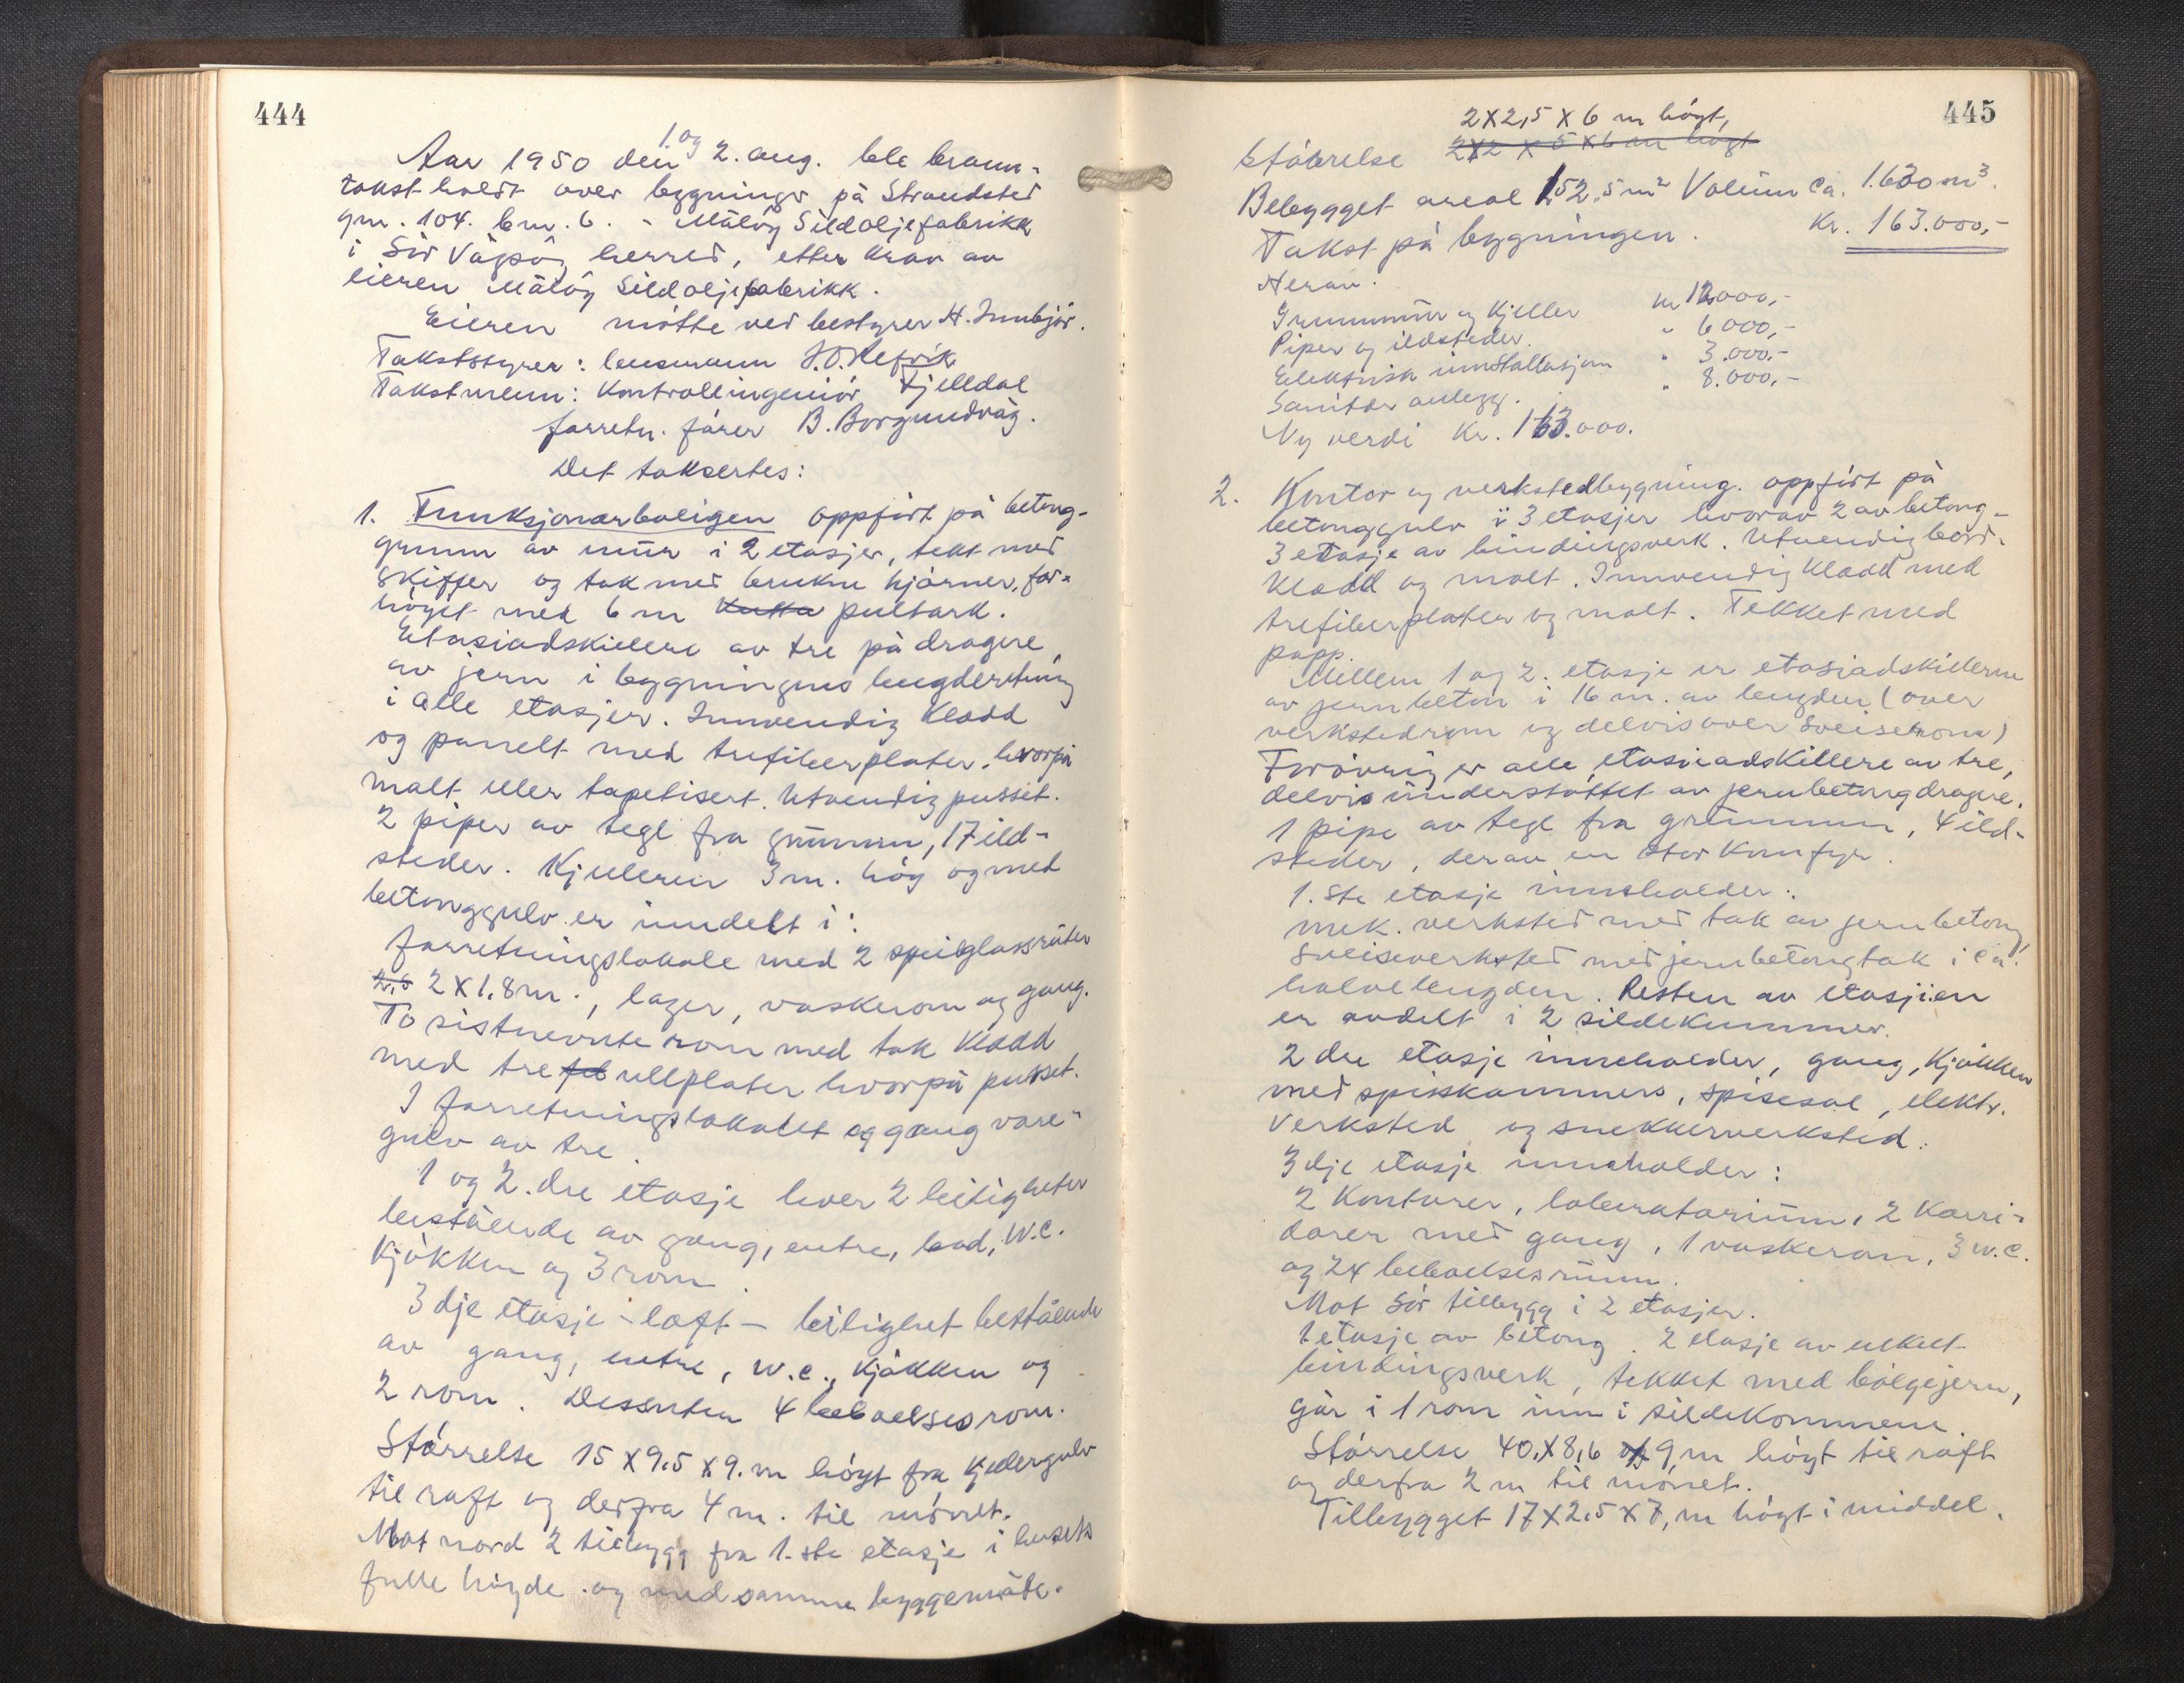 444
Aar 1950 den 1. og 2. aug. ble brann-
takst holdt over bygninger på Strandsted
gnr. 104. bnr. 6. - Måløy Sildoljefabrikk
i Sör Vågsöy herred, etter krav av
eieren Måløy Sildoljefabrikk.
Eieren mötte ved bestyrer H. Innbjör.
Takststyrer: lensmann J.O. Refvik
Takstmenn: Kontrollingeniör Fjelldal
forretn. förer B. Borgundvåg.
Det taksertes:
1. Funksjonærboligen oppfört på betong-
grunn av mur i 2 etasjer, tekt med
skiffer og tak med brukne hjörner, for-
höyet med 6 m pultark.
Etasjeadskillere av tre på dragere
av jern i bygningens lengderetning
i alle etasjer. Innvendig kledd
og panelt med trefiberplater, hvorpå
malt eller tapetisert. Utvendig pusset.
2 piper av tegl fra grunnen, 17 ild-
steder. Kjelleren 3 m. höy og med
betonggulv er inndelt i:
forretningslokale med 2 speilglassruter
2,5 2 X 1.8 m., lager, vaskerom og gang.
To sistnevnte rom med tak kledd
med treullplater hvorpå pusset.
I forretningslokalet og gang vare-
gulv av tre.
1 og 2. dre etasje hver 2 leiligheter
bestående av gang, entre, bad, W.C.
kjökken og 3 rom.
3 dje etasje - loft - leilighet bestående
av gang, entre, w.c., kjökken og
2 rom. Dessuten 4 beboelsesrom.
Störrelse 15 X 9,5 X 9. m höyt fra kjellergulv
til raft og derfra 4 m. til mönet.
Mot nord 2 tilbygg fra 1.ste etasje i husets
fulle höyde og med samme byggemåte.
445
2 X 2,5 X 6 m höyt,
Störrelse 2X2 X 5 X 6 m höyt
Bebygget areal 152,5 m² Volum ca. 1.630 m³.
Takst på bygningen. Kr. 163.000,-
Herav:
Grunnmur og kjeller kr 12000,-
Piper og ildsteder. " 6000,-
Elektrisk innstallasjon " 3.000.-
Sanitær anlegg. " 8.000,-
Ny verdi Kr. 163.000.
2. Kontor og verkstedbygning. oppfört på
betonggulv i 3 etasjer hvorav 2 av betong-
3 etasje av bindingsverk. Utvendig bord-
kledd og malt. Innvendig kledd med
trefiberplater og malt. Tekket med
papp.
Mellem 1 og 2. etasje er etasjeadskillerne
av jernbeton i 16 m. av lengden (over
verkstedrom og delvis over Sveiserom)
Forövrig er alle etasjeadskillere av tre,
delvis understöttet av jernbetongdragere.
1 pipe av tegl fra grunnen, 4 ild-
steder, derav en stor komfyr.
1. Ste etasje inneholder:
mek. verksted med tak av jernbetong,
Sveiseverksted med jernbetongtak i ca.
halve lengden. Resten av etasjen
er avdelt i 2 sildekummer.
2 dre etasje inneholder, gang, kjökken
med spisskammers, spisesal, elektr.
verksted og snekkerverksted.
3 dje etasje inneholder:
2 kontorer, laboratorium, 2 korri-
dorer med gang, 1 vaskerom, 3 w.c.
og 24 beboelsesrum.
Mot Sör tilbygg i 2 etasjer.
1 etasje av betong. 2 etasje av enkelt
bindingsverk, tekket med bölgejern,
går i 1 rom inn i sildekommene.
Störrelse 40, X 8,6 X 9, m höyt til raft
og derfra 2 m til mönet.
Tilbygget 17 X 2,5 X 7, m höyt i middel.